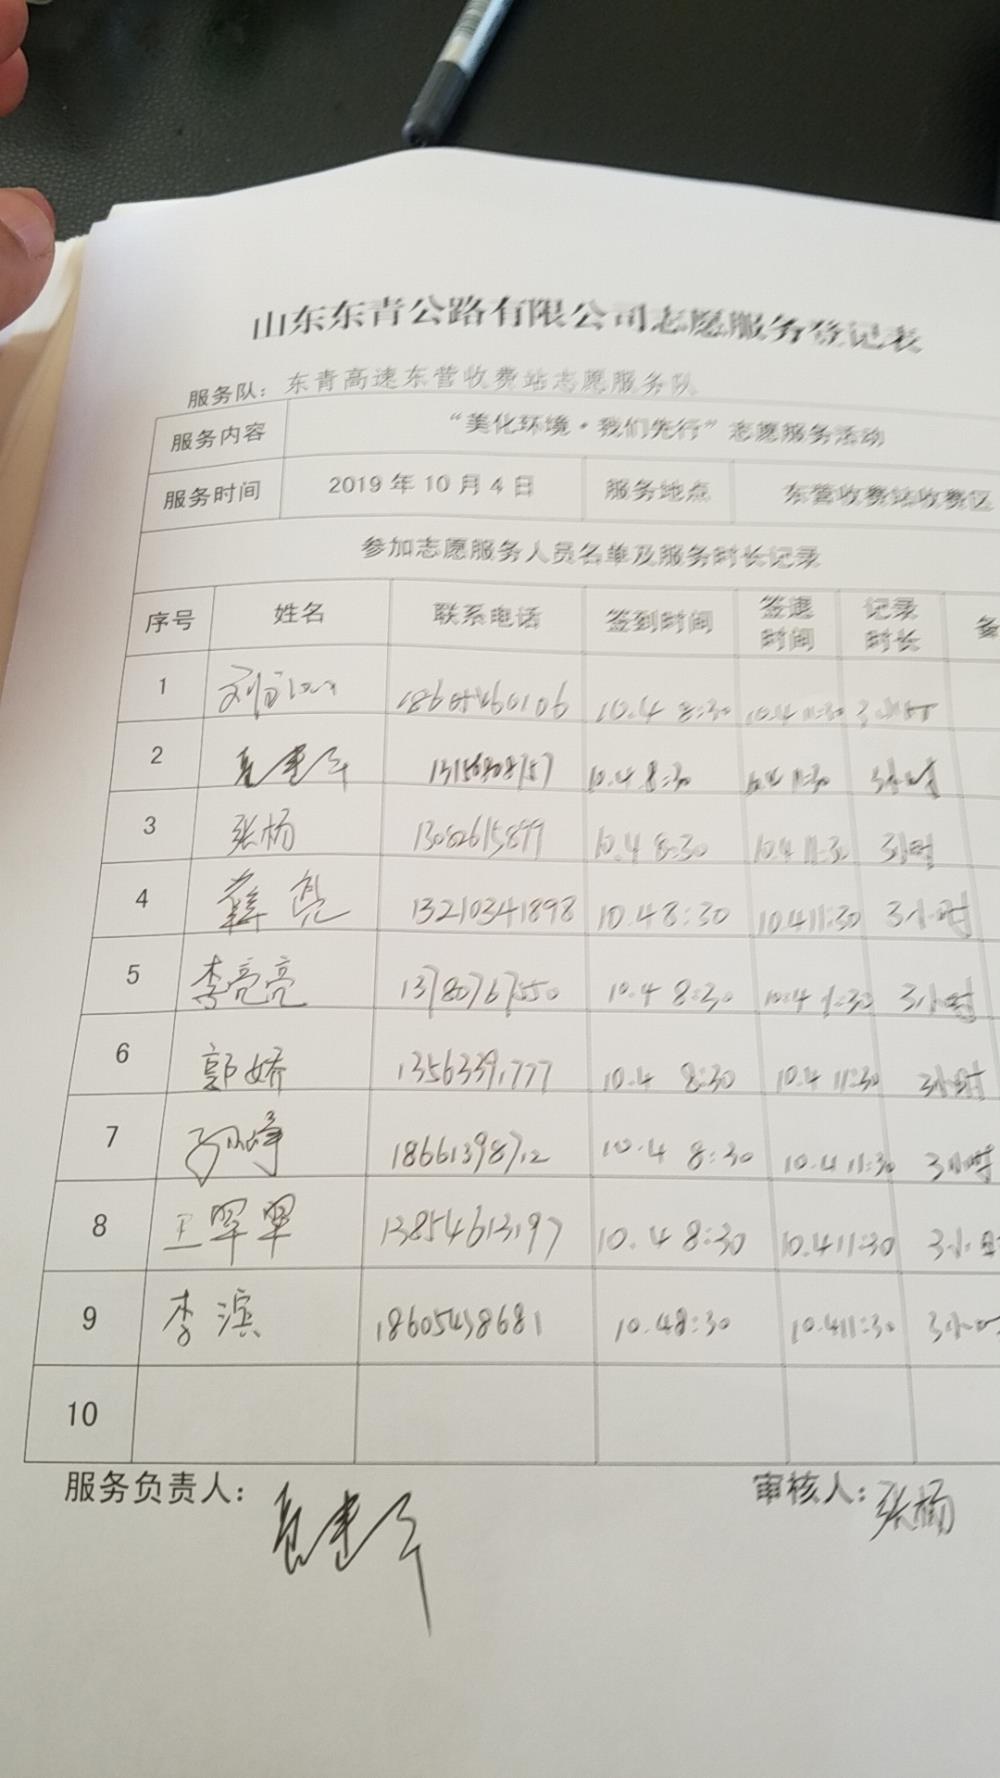 山东东青公路有限公司志愿服务登记表
服务队：东青高速东营收费站志愿服务队
服务内容 “美化环境·我们先行”志愿服务活动
服务时间 2019年10月4日 服务地点 东营收费站收费区
参加志愿服务人员名单及服务时长记录
序号 姓名 联系电话 签到时间 签退时间 记录时长 备
1 10.4 8:30 10.4 11:30 3小时
2 10.4 8:30 10.4 11:30 3小时
3 张杨 13082615899 10.4 8:30 10.4 11:30 3小时
4 薛亮 13210341898 10.4 8:30 10.4 11:30 3小时
5 李亮亮 13780767550 10.4 8:30 10.4 11:30 3小时
6 郭娇 13563391777 10.4 8:30 10.4 11:30 3小时
7 18661398712 10.4 8:30 10.4 11:30 3小时
8 王翠翠 13854613197 10.4 8:30 10.4 11:30 3小时
9 李滨 18605458681 10.4 8:30 10.4 11:30 3小时
10
服务负责人： 审核人：张杨